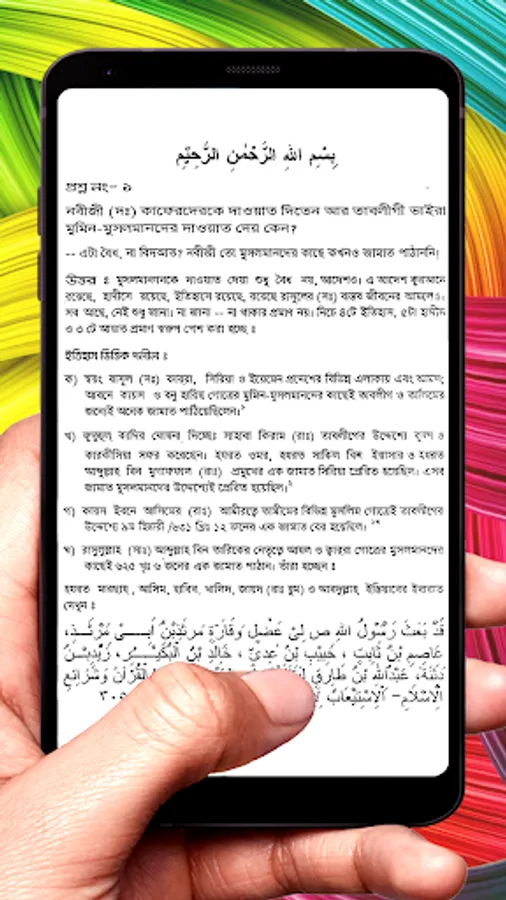 بِسْمِ اللهِ الرَّحْمٰنِ الرَّحِيْمِ
প্রশ্ন নং- ৯
নবীজী (দঃ) কাফেরদেরকে দাওয়াত দিতেন আর তাবলীগী ভাইরা
মুমিন-মুসলমানদের দাওয়াত দেয় কেন?
-- এটা বৈধ, না বিদআত? নবীজী তো মুসলমানদের কাছে কখনও জামাত পাঠাননি!
উত্তর ঃ মুসলমানদেরকে দাওয়াত দেয়া শুধু বৈধ নয়, আদেশও। এ আদেশ কুরআনে
রয়েছে, হাদীসে রয়েছে, ইতিহাসে রয়েছে, রয়েছে রাসূলের (সঃ) বাস্তব জীবনের আমলেও।
সব আছে, নেই শুধু জানা। না জানা -- না থাকার প্রমাণ নয়। নিচে ৪টে ইতিহাস, ৫টা হাদীস
ও ৩ টে আয়াত প্রমাণ স্বরূপ পেশ করা হচ্ছে ঃ
ইতিহাস ভিত্তিক দলীল ঃ
ক) স্বয়ং রাসূল (সঃ) সিরিয়া ও ইয়েমেন প্রদেশের বিভিন্ন এলাকায় এবং
ও বনু হারিছ গোত্রের মুমিন-মুসলমানদের কাছেই তাবলীগ ও তালিমের
জন্যেই অনেক জামাত পাঠিয়েছিলেন।
খ) সাহাবা কিরাম (রাঃ) তাবলীগের উদ্দেশ্যে ও
কারকীসিয়া সফর করেছেন। হযরত ওমর, হযরত বিন ইয়াসার ও হযরত
আব্দুল্লাহ্ বিন মুগাফফাল (রাঃ) প্রমুখের এক জামাত সিরিয়া প্রেরিত হয়েছিল। এসব
জামাত মুসলমানদের উদ্দেশ্যেই প্রেরিত হয়েছিল।
গ) কায়স ইবনে আসিমের (রাঃ) আমীরত্বে তামীমের বিভিন্ন মুসলিম গোত্রেই তাবলীগের
উদ্দেশ্যে ৯ম হিজরী /৬৩১ খ্রিঃ ১২ জনের এক জামাত বের হয়েছিল।
ঘ) রাসূলুল্লাহ্ (সাঃ) আব্দুল্লাহ্ বিন তারিকের নেতৃত্বে আযল ও ক্বারাহ গোত্রের মুসলমানদের
কাছেই ৬২৫ খৃঃ ৬ জনের এক জামাত পাঠান। তাঁরা হচ্ছেন ঃ
হযরত মারছাদ , আসিম, হাবিব, খালিদ, জায়দ (রাঃ হুম) ও আবদুল্লাহ্ ইস্তিয়াবের ইবারত
দেখুন ঃ
قَدْ بَعَثَ رَسُوْلُ اللهِ ص لِىْ عَضَلٍ وَقَارَةٍ مَرثَدِبْنُ اَبِـىْ مَرْثَـدْ،
عَاصِمِ بْنُ ثَابِتْ ، خَبِيْبِ بْنُ عَدِىْ ، خَالِدِ بْنُ الْبُكَيْـرْ، زَيْدِبْـنْ
دَثِنَةْ، عَبْدُاللهِ بْنُ طَارِقْ الْقُرْآنَ وَشَرَائِعِ
الْاِسْلَامِ- اَلْاِسْتِيْعَابْ ٣٠٥